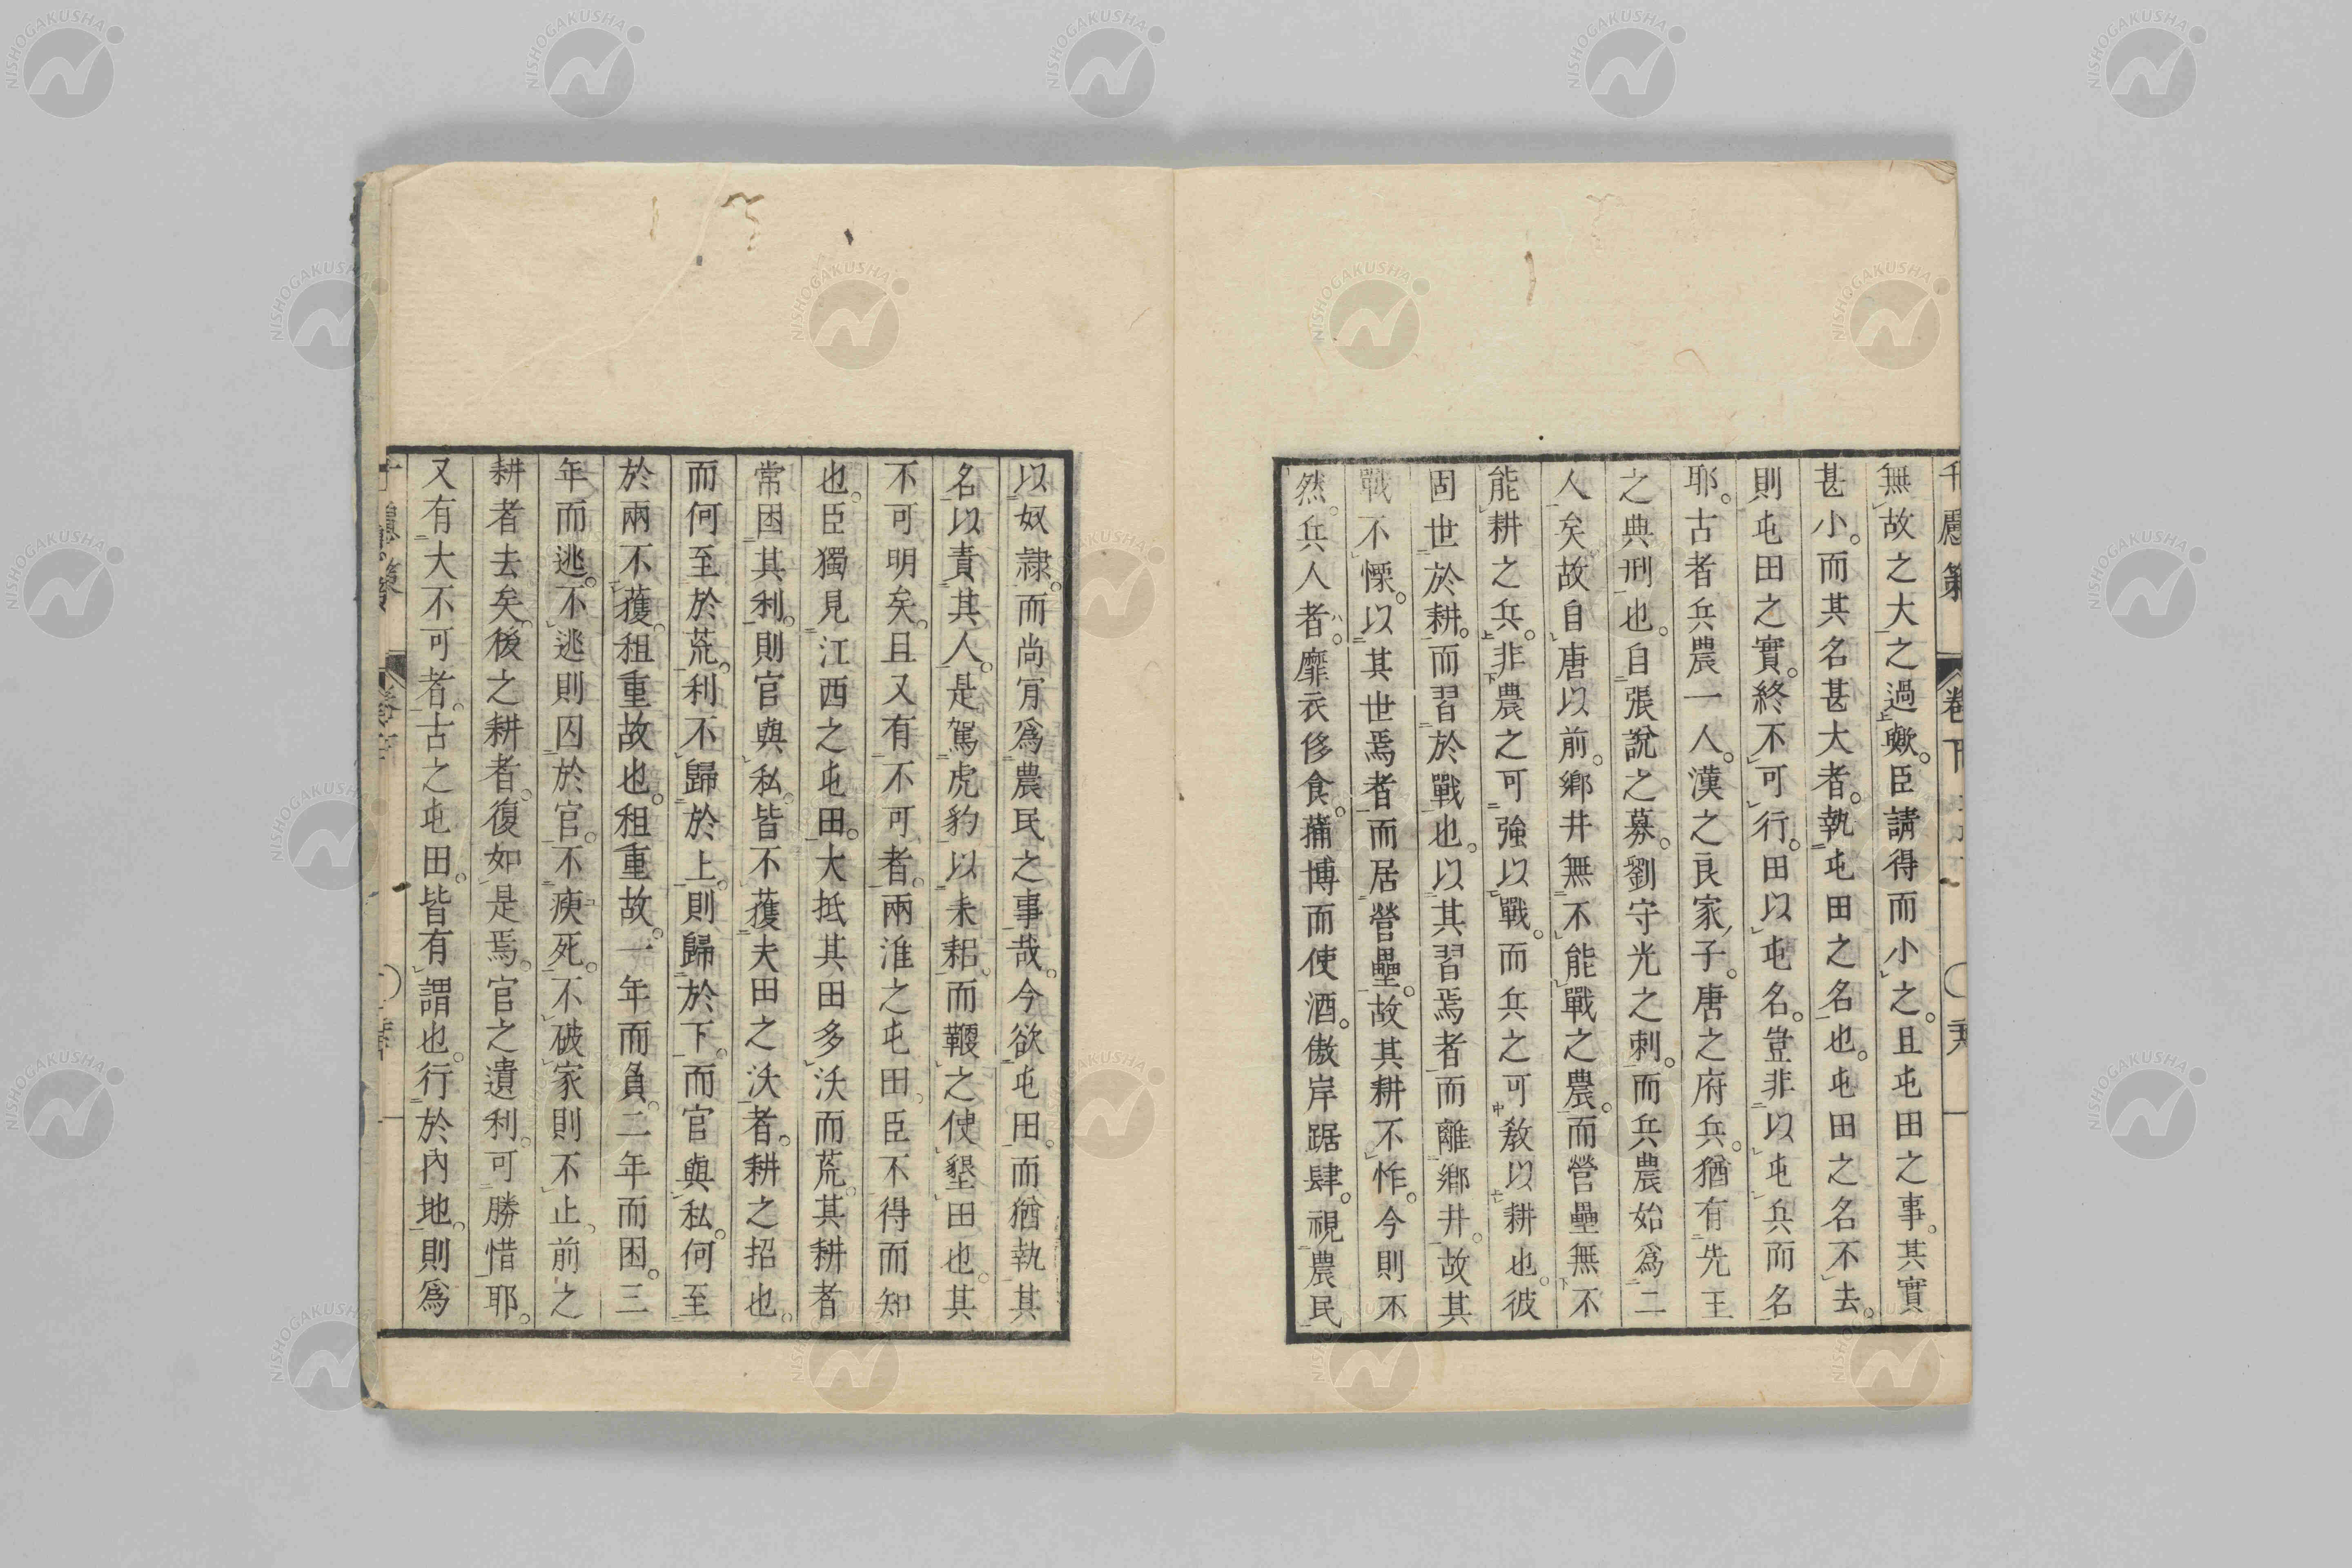 千慮策 卷下
無故之大之過歟。臣請得而小之。且屯田之事。其實
甚小。而其名甚大者。執屯田之名也。屯田之名不去。
則屯田之實。終不可行。田以屯名。豈非以屯兵而名
耶。古者兵農一人。漢之良家子。唐之府兵。猶有先王
之典刑也。自張說之募。劉守光之刺。而兵農始爲二
人矣故自唐以前。鄉井無不能戰之農。而營壘無不
能耕之兵。非農之可強以戰。而兵之可教以耕也。彼
固世於耕。而習於戰也。以其習焉者而離鄉井。故其
戰不慄。以其世焉者而居營壘。故其耕不怍。今則不
然。兵人者。靡衣侈食。蒱博而使酒。傲岸踞肆。視農民
以奴隷。而尚肎爲農民之事哉。今欲屯田。而猶執其
名以責其人。是駕虎豹以耒耜。而鞭之使墾田也。其
不可明矣。且又有不可者。兩淮之屯田。臣不得而知
也。臣獨見江西之屯田。大抵其田多沃而荒。其耕者
常困其利。則官與私。皆不獲夫田之沃者。耕之招也。
而何至於荒。利不歸於上。則歸於下。而官與私。何至
於兩不獲。租重故也。租重故。一年而負。二年而困。三
年而逃。不逃則囚於官。不瘐死。不破家則不止。前之
耕者去矣。後之耕者。復如是焉。官之遺利。可勝惜耶。
又有大不可者。古之屯田。皆有謂也。行於內地。則爲